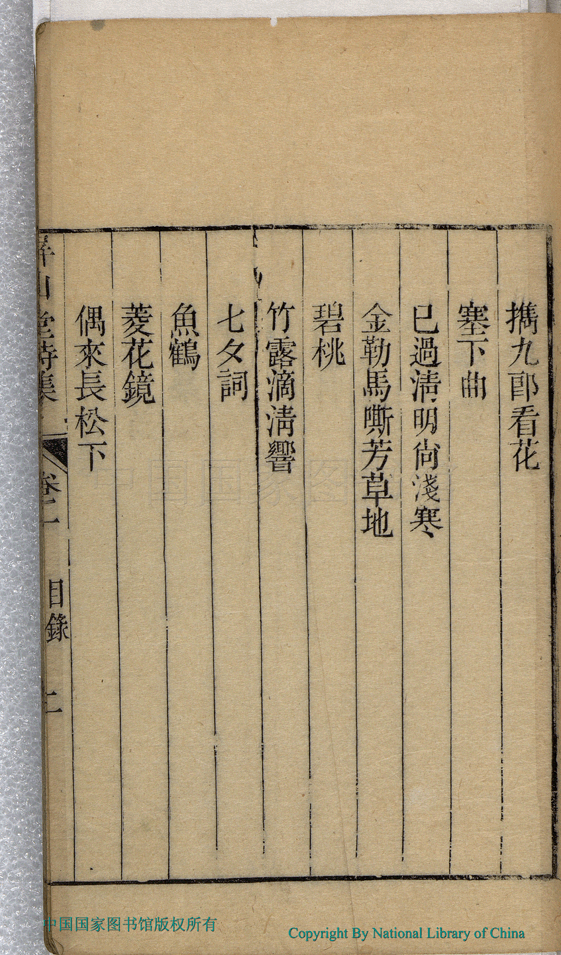 攜九郎看花
塞下曲
已過淸明尙淺寒
金勒馬嘶芳草地
碧桃
竹露滴淸響
七夕詞
魚鶴
菱花鏡
偶來長松下
山堂詩集
卷二
目錄
二
中国国家图书馆版权所有
Copyright By National Library of China